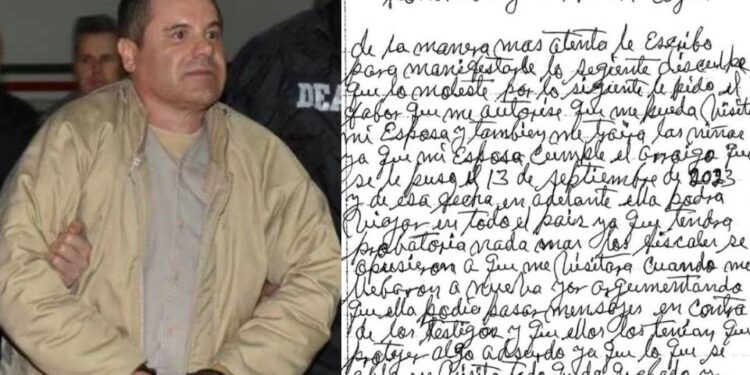 DEA
de la manera mas atenta le Escribo
para manifestarle lo segiente disculpe
que lo moleste por lo sigiente le pido el
fabor que me autorise que me pueda visitar
mi Esposa y tambien me traiga las niñas
ya que mi Esposa cumple el arraigo que
se le puso el 13 de septiembre de 2023
y de esa fecha en adelante ella podra
viajar en todo el pais ya que tendra
probatoria nada mas los fiscales se
opusieron a que me visitara cuando me
llebaron a nueva yor argumentando
que ella podia pasar mensajes en contra
de los testigos y que ellos los tenian que
protejer algo adsurdo ya que lo que se